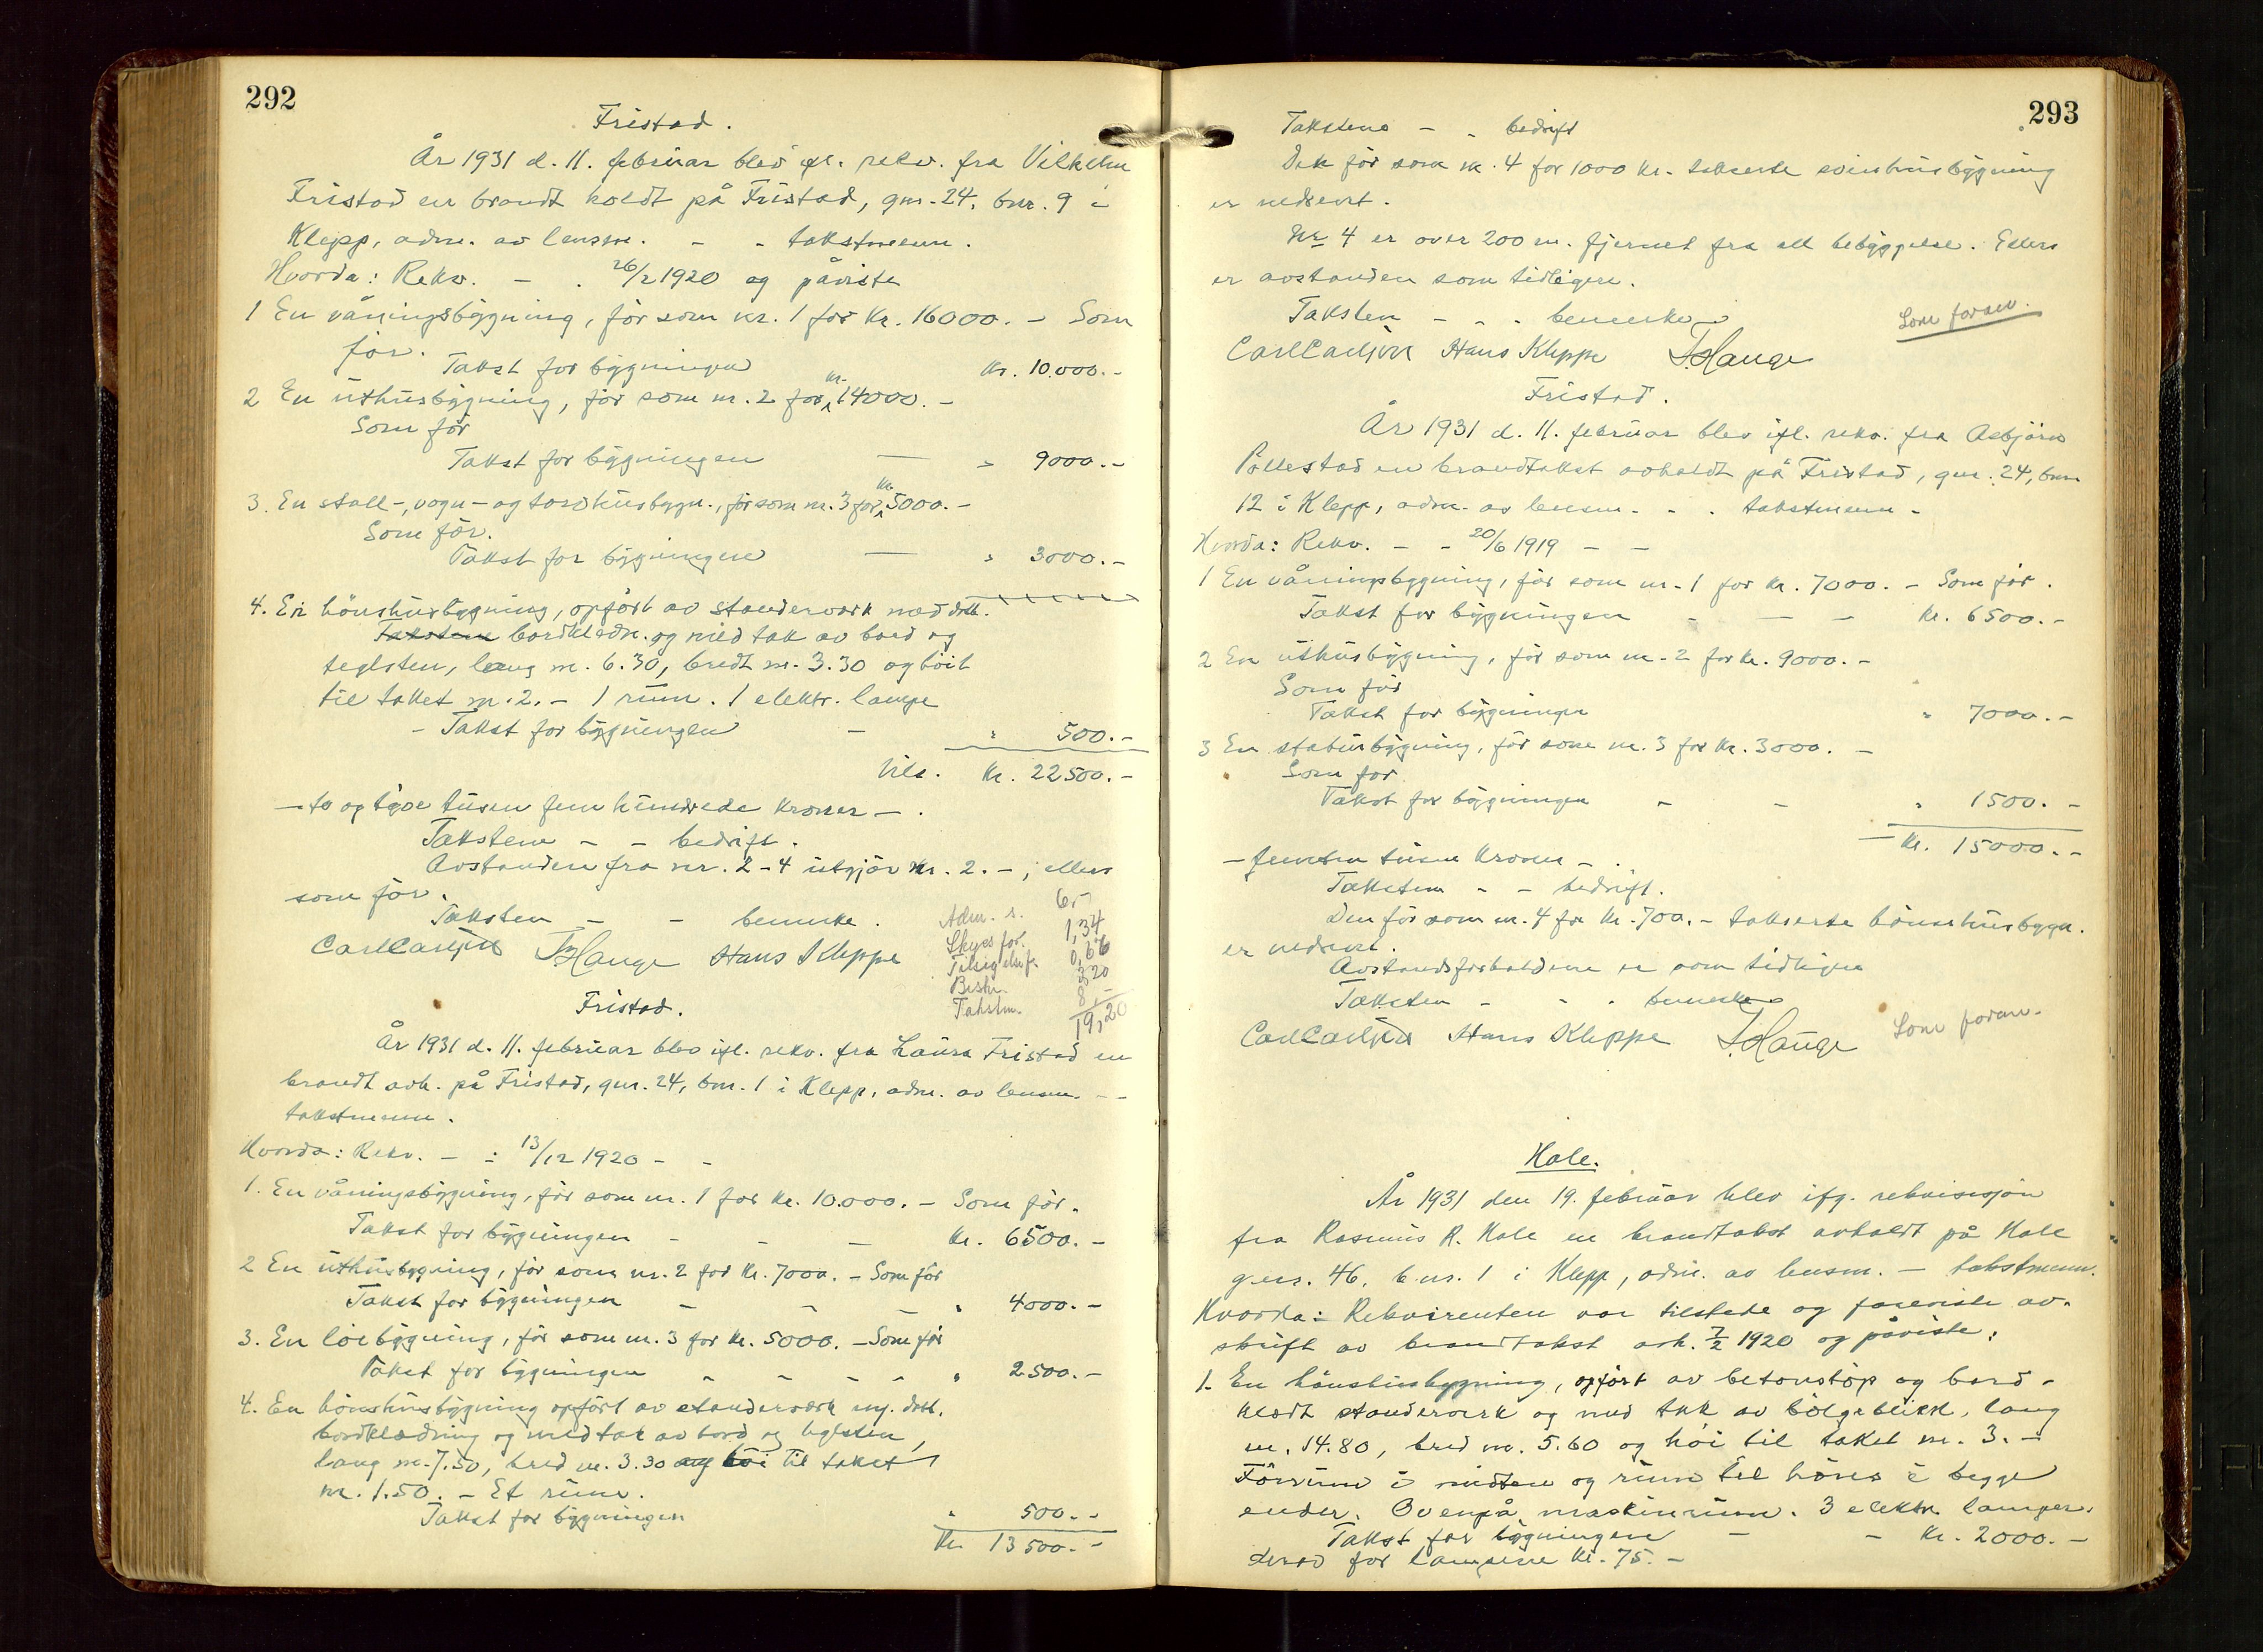 292
Fristad.
År 1931 d. 11. februar blev ifl. rekv. fra Vilhelm
Fristad en brandt holdt på Fristad, gnr. 24, bnr. 9 i
Klepp, adm. av lensm. - - takstmenn.
Hvorda: Rekv. - . 26/2 1920 og påviste
1 En våningsbygning, før som nr. 1 for Kr. 16000. - Som
før.
Takst for bygningen Kr. 10.000.-
2 En uthusbygning, før som nr. 2 for kr. 14000. -
Som før
Takst for bygningen — " 9000.-
3. En stall-, vogn- og torvhusbygn., før som nr. 3 for kr. 5000. -
Som før.
Takst for bygningen — " 3000.-
4. En hønshusbygning, opført av standerverk med dobb.
Taksten bordkledn. og med tak av bord og
teglsten, lang m. 6.30, bredt m. 3.30 og høit
til taket m. 2. - 1 rum. 1 elektr. lampe
- Takst for bygningen - " 500.-
Tils. Kr. 22500.-
- to og tyve tusen fem hundrede kroner - .
Takstene - - bedrift.
Avstanden fra nr. 2-4 utgjør m. 2. -, ellers
som før.
Taksten - - bemerke.
Carl Carlsen T. Hauge Hans Kleppe
Adm. s. 6.-
Skyss for. 1,34
0,66
Beskr. 3,20
Takstm. 8,-
19,20
Fristad.
År 1931 d. 11. februar blev ifl. rekv. fra Laura Fristad en
brandt avh. på Fristad, gnr. 24, bnr. 1 i Klepp, adm. av lensm. - -
takstmenn.
Hvorda: Rekv. - - 13/12 1920 - -
1. En våningsbygning, før som nr. 1 for kr. 10.000. - Som før.
Takst for bygningen - - - Kr. 6500.-
2 En uthusbygning, før som nr. 2 for kr. 7000. - Som før
Takst for bygningen - - - " 4000.-
3. En løebygning, før som nr. 3 for kr. 5000. - Som før
Takst for bygningen - - - - " 2500.-
4. En hønshusbygning opført av standerverk m. dobb.
bordkledning og med tak av bord og teglsten,
lang m. 7.50, bred m. 3.30 og høi til taket
m. 1.50. - Et rum.
Takst for bygningen " 500.-
Kr. 13500.-
293
Takstene - - bedrift
Det før som nr. 4 for 1000 kr. takserte svinhusbygning
er nedrevet.
Nr. 4 er over 200 m. fjernet fra all bebyggelse. Ellers
er avstanden som tidligere.
Taksten - - - bemerke
Som foran.
Carl Carlsen Hans Kleppe T. Hauge
Fristad.
År 1931 d. 11. februar blev ifl. rekv. fra Asbjørn
Pollestad en brandtakst avholdt på Fristad, gnr. 24, bnr.
12 i Klepp, adm. av lensm. - - . takstmenn -
Hvorda: Rekv. - - 20/6 1919 - -
1 En våningsbygning, før som nr. 1 for kr. 7000. - Som før.
Takst for bygningen - - - Kr. 6500.-
2 En uthusbygning, før som nr. 2 for kr. 9000. -
Som før
Takst for bygningen " 7000.-
3 En stabursbygning, før som nr. 3 for kr. 3000. -
Som før
Takst for bygningen - - " 1500. -
Kr. 15000.-
- femten tusen kroner - .
Taksten - - bedrift.
Den før som nr. 4 for kr. 700. - takserte hønsehusbygn.
er nedrevet.
Avstandsforholdene er som tidligere
Taksten - - - bemerke
Carl Carlsen Hans Kleppe T. Hauge
Som foran.
Hole.
År 1931 den 19. februar blev ifg. rekvisisjon
fra Rasmus R. Hole en brandtakst avholdt på Hole
g.nr. 46, b.nr. 1 i Klepp, adm. av lensm. - takstmenn.
Hvorda: Rekvirenten var tilstede og foreviste av-
skrift av brandtakst avh. 7/2 1920 og påviste:
1. En hønshusbygning, opført av betonstøp og bord-
kledt standerverk og med tak av bølgeblikk, lang
m. 14.80, bred m. 5.60 og høi til taket m. 3. -
Fôrrum i midten og rum til høns i begge
ender. Ovenpå maskinrum. 3 elektr. lamper.
Takst for bygningen - - Kr. 2000.-
derav for lampene kr. 75. -